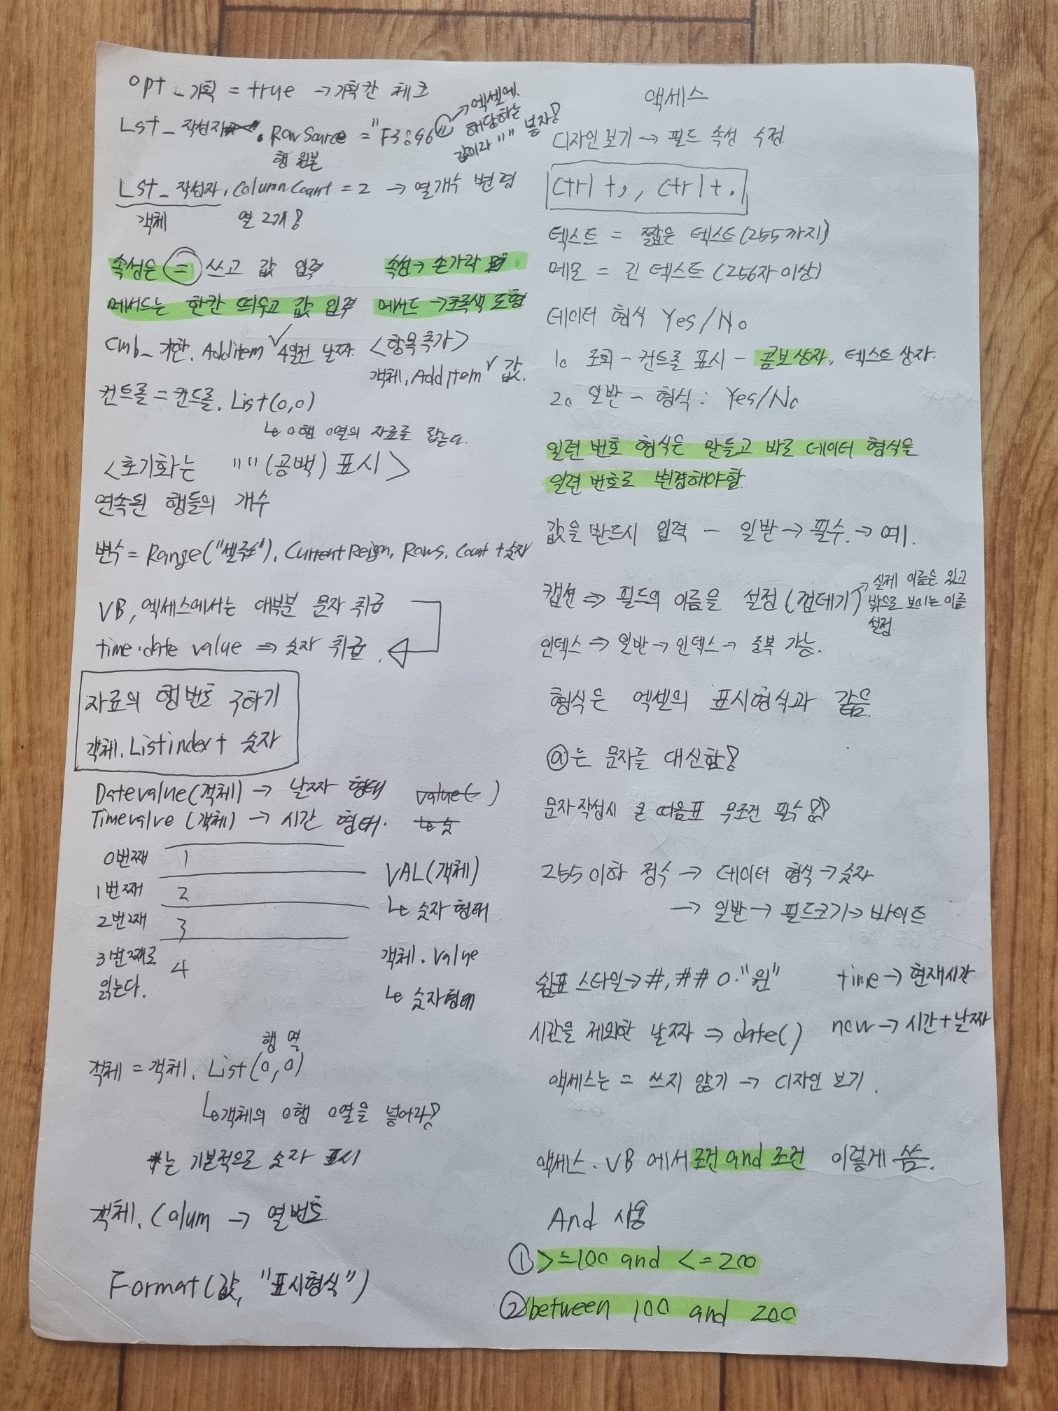 opt_기획 = true → 기획칸 체크
Lst_작성자.RowSource = "F3:G6" → 엑셀에
해당하는
값이라 "" 넣자!
행 원본
Lst_작성자.ColumnCount = 2 → 열개수 변경
객체 열 2개!
속성은 = 쓰고 값 입력 속성 → 손가락
메서드는 한칸 띄우고 값 입력 메서드 → 초록색 도형
Cmb_기한.AddItem ✓ 4일전 날짜 <항목추가>
객체.AddItem ✓ 값.
컨트롤 = 컨트롤.List(0,0)
↳ 0행 0열의 자료로 잡는다.
<초기화는 ""(공백) 표시>
연속된 행들의 개수
변수 = Range("셀주소").CurrentReign.Rows.Count + 숫자
VB, 엑세스에서는 대부분 문자 취급
time·date value ⇒ 숫자 취급.
자료의 행번호 구하기
객체.Listindex + 숫자
Datevalue(객체) → 날짜 형태 value( )
Timevalve(객체) → 시간 형태. ↳ 숫
0번째 1
1번째 2
2번째 3
3번째로 4
읽는다.
VAL(객체)
↳ 숫자 형태
객체.value
↳ 숫자형태
행 열
객체 = 객체.List(0,0)
↳ 객체의 0행 0열을 넣어라!
*는 기본적으로 숫자 표시
객체.Colum → 열번호
Format(값, "표시형식")
액세스
디자인보기 → 필드 속성 수정
Ctrl+;, ctrl+.
텍스트 = 짧은 텍스트(255까지)
메모 = 긴 텍스트(256자이상)
데이터 형식 Yes/No
1. 조회 - 컨트롤 표시 - 콤보상자, 텍스트 상자.
2. 일반 - 형식 : Yes/No
일련 번호 형식은 만들고 바로 데이터 형식을
일련 번호로 변경해야함.
값을 반드시 입력 - 일반 → 필수 → 예.
캡션 ⇒ 필드의 이름을 설정(껍데기) → 실제 이름은 있고
밖으로 보이는 이름
설정
인덱스 ⇒ 일반 → 인덱스 → 중복 가능.
형식은 엑셀의 표시형식과 같음
@은 문자를 대신함!
문자작성시 큰 따음표 무조건 필수!!
255이하 정수 → 데이터 형식 → 숫자
→ 일반 → 필드크기 → 바이트
쉼표 스타일 → #,##0."원" time → 현재시간
시간을 제외한 날짜 ⇒ date() now → 시간+날짜
액세스는 = 쓰지 않기 → 디자인 보기.
액세스. VB에서 조건 and 조건 이렇게 씀.
And 사용
① >=100 and <=200
② between 100 and 200